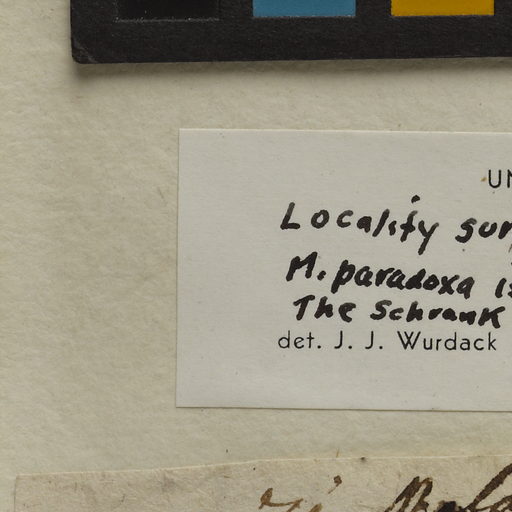 UN
Locality sur
M. paradoxa is
The Schrank
det. J. J. Wurdack